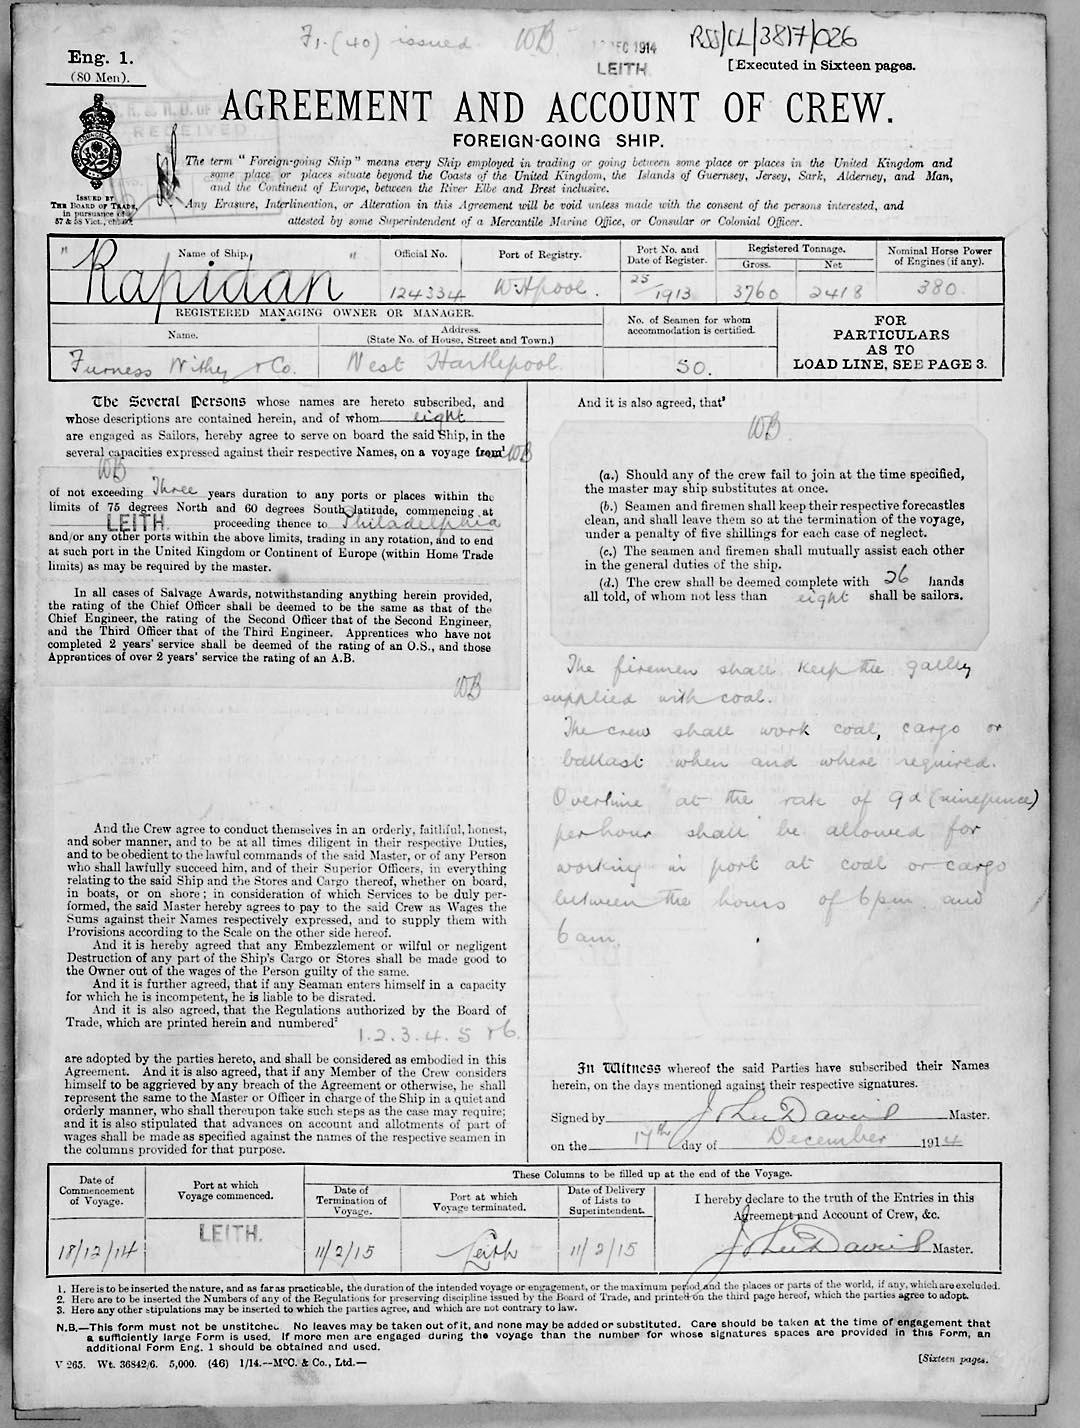 F1. (40) issued WB. DEC 1914 RSS/CL/3817/026
LEITH
Eng. 1.
(80 Men).
[Executed in Sixteen pages.
AGREEMENT AND ACCOUNT OF CREW.
FOREIGN-GOING SHIP.
RECEIVED
The term "Foreign-going Ship" means every Ship employed in trading or going between some place or places in the United Kingdom and
some place or places situate beyond the Coasts of the United Kingdom, the Islands of Guernsey, Jersey, Sark, Alderney, and Man,
and the Continent of Europe, between the River Elbe and Brest inclusive.
Any Erasure, Interlineation, or Alteration in this Agreement will be void unless made with the consent of the persons interested, and
attested by some Superintendent of a Mercantile Marine Office, or Consular or Colonial Officer.
ISSUED BY
THE BOARD OF TRADE,
in pursuance of
57 & 58 Vict., ch. 60.
Name of Ship.
"Rapidan"
Official No.
124334
Port of Registry.
W. Hpool.
Port No. and
Date of Register.
25/1913
Registered Tonnage.
Gross.
3760
Net
2418
Nominal Horse Power
of Engines (if any).
380
REGISTERED MANAGING OWNER OR MANAGER.
Name.
Furness Withy & Co.
Address.
(State No. of House, Street and Town.)
West Hartlepool.
No. of Seamen for whom
accommodation is certified.
50.
FOR
PARTICULARS
AS TO
LOAD LINE, SEE PAGE 3.
The Several Persons whose names are hereto subscribed, and
whose descriptions are contained herein, and of whom eight
are engaged as Sailors, hereby agree to serve on board the said Ship, in the
several capacities expressed against their respective Names, on a voyage from1 WB
WB
of not exceeding Three years duration to any ports or places within the
limits of 75 degrees North and 60 degrees South latitude, commencing at
LEITH. proceeding thence to Philadelphia
and/or any other ports within the above limits, trading in any rotation, and to end
at such port in the United Kingdom or Continent of Europe (within Home Trade
limits) as may be required by the master.
In all cases of Salvage Awards, notwithstanding anything herein provided,
the rating of the Chief Officer shall be deemed to be the same as that of the
Chief Engineer, the rating of the Second Officer that of the Second Engineer,
and the Third Officer that of the Third Engineer. Apprentices who have not
completed 2 years' service shall be deemed of the rating of an O.S., and those
Apprentices of over 2 years' service the rating of an A.B.
WB
And the Crew agree to conduct themselves in an orderly, faithful, honest,
and sober manner, and to be at all times diligent in their respective Duties,
and to be obedient to the lawful commands of the said Master, or of any Person
who shall lawfully succeed him, and of their Superior Officers, in everything
relating to the said Ship and the Stores and Cargo thereof, whether on board,
in boats, or on shore; in consideration of which Services to be duly per-
formed, the said Master hereby agrees to pay to the said Crew as Wages the
Sums against their Names respectively expressed, and to supply them with
Provisions according to the Scale on the other side hereof.
And it is hereby agreed that any Embezzlement or wilful or negligent
Destruction of any part of the Ship's Cargo or Stores shall be made good to
the Owner out of the wages of the Person guilty of the same.
And it is further agreed, that if any Seaman enters himself in a capacity
for which he is incompetent, he is liable to be disrated.
And it is also agreed, that the Regulations authorized by the Board of
Trade, which are printed herein and numbered2
1. 2. 3. 4. 5 & 6.
are adopted by the parties hereto, and shall be considered as embodied in this
Agreement. And it is also agreed, that if any Member of the Crew considers
himself to be aggrieved by any breach of the Agreement or otherwise, he shall
represent the same to the Master or Officer in charge of the Ship in a quiet and
orderly manner, who shall thereupon take such steps as the case may require;
and it is also stipulated that advances on account and allotments of part of
wages shall be made as specified against the names of the respective seamen in
the columns provided for that purpose.
And it is also agreed, that3
WB
(a.) Should any of the crew fail to join at the time specified,
the master may ship substitutes at once.
(b.) Seamen and firemen shall keep their respective forecastles
clean, and shall leave them so at the termination of the voyage,
under a penalty of five shillings for each case of neglect.
(c.) The seamen and firemen shall mutually assist each other
in the general duties of the ship.
(d.) The crew shall be deemed complete with 26 hands
all told, of whom not less than eight shall be sailors.
The firemen shall keep the galley
supplied with coal.
The crew shall work coal, cargo or
ballast when and where required.
Overtime at the rate of 9d (ninepence)
per hour shall be allowed for
working in port at coal or cargo
between the hours of 6pm and
6am.
In Witness whereof the said Parties have subscribed their Names
herein, on the days mentioned against their respective signatures.
Signed by John David Master.
on the 17th day of December 1914
Date of
Commencement
of Voyage.
18/12/14
Port at which
Voyage commenced.
LEITH.
These Columns to be filled up at the end of the Voyage.
Date of
Termination of
Voyage.
11/2/15
Port at which
Voyage terminated.
Leith
Date of Delivery
of Lists to
Superintendent.
11/2/15
I hereby declare to the truth of the Entries in this
Agreement and Account of Crew, &c.
John David Master.
1. Here is to be inserted the nature, and as far as practicable, the duration of the intended voyage or engagement, or the maximum period and the places or parts of the world, if any, which are excluded.
2. Here are to be inserted the Numbers of any of the Regulations for preserving discipline issued by the Board of Trade, and printed on the third page hereof, which the parties agree to adopt.
3. Here any other stipulations may be inserted to which the parties agree, and which are not contrary to law.
N.B.—This form must not be unstitched. No leaves may be taken out of it, and none may be added or substituted. Care should be taken at the time of engagement that
a sufficiently large Form is used. If more men are engaged during the voyage than the number for whose signatures spaces are provided in this Form, an
additional Form Eng. 1 should be obtained and used.
V 265. Wt. 36842/6. 5,000. (46) 1/14.—McC. & Co., Ltd.—
[Sixteen pages.